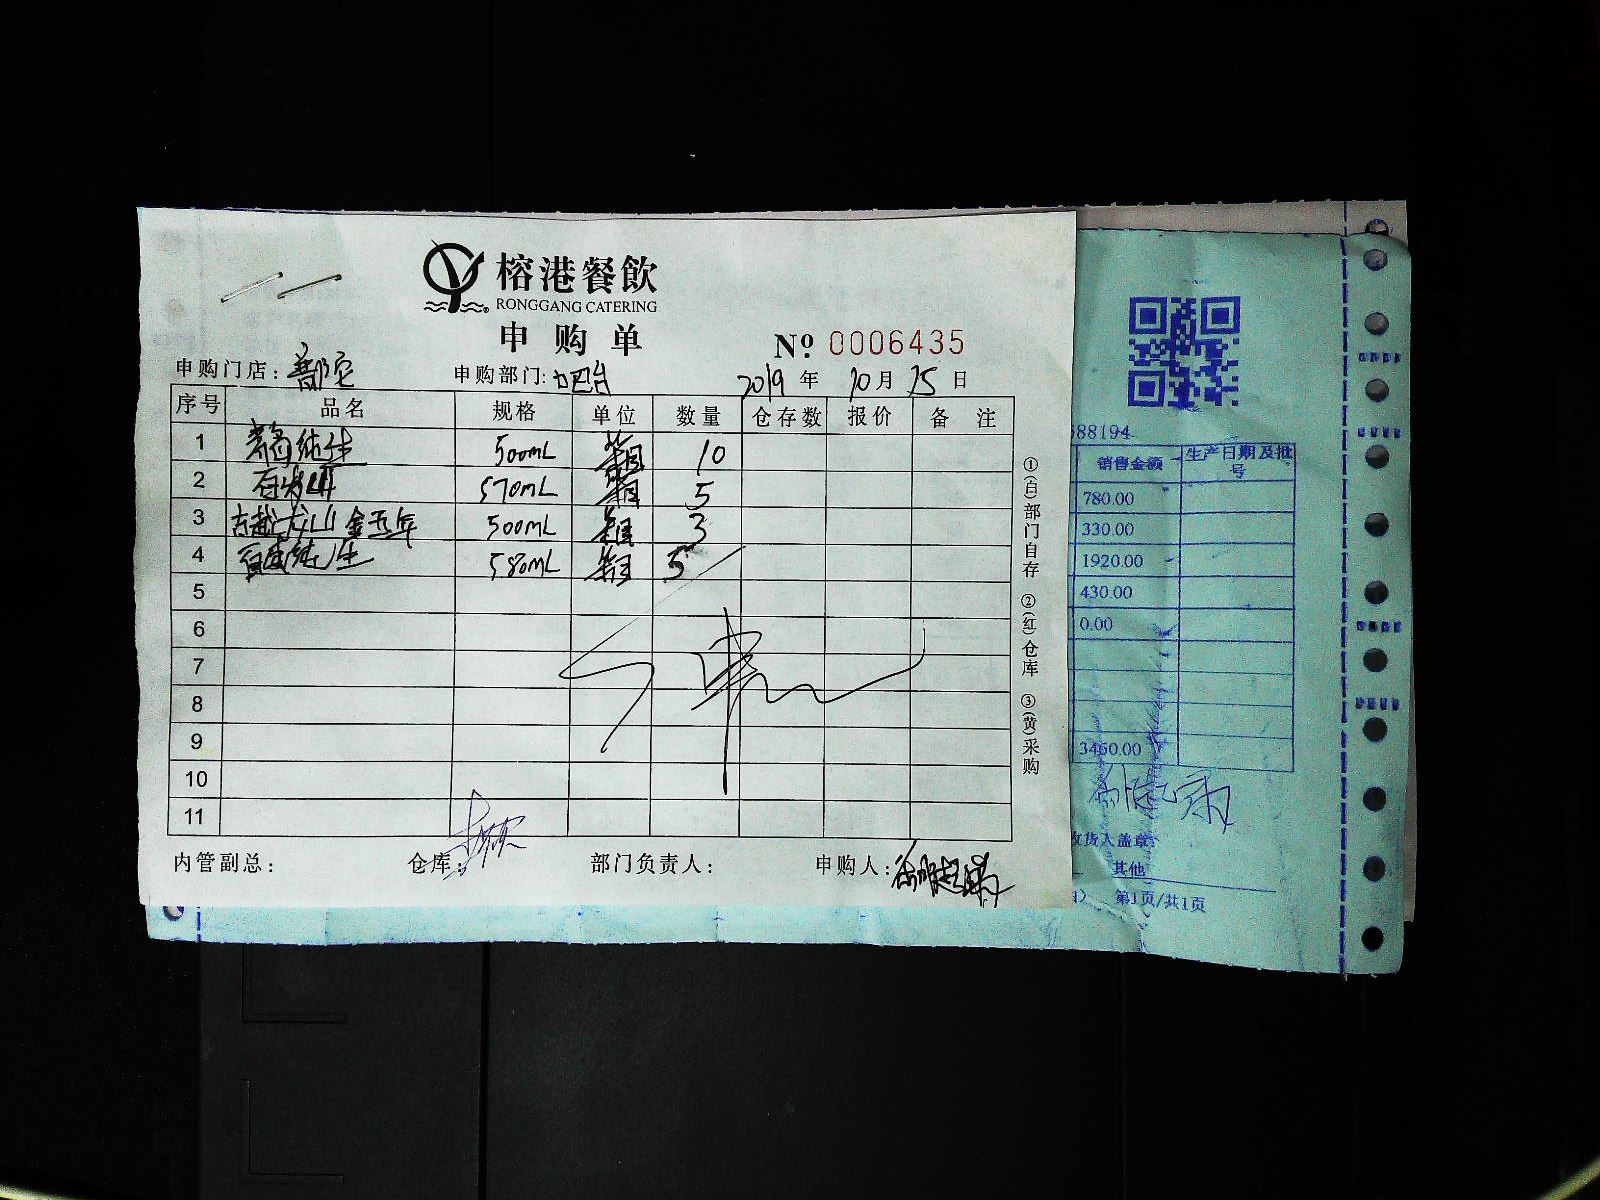 榕港餐飲
RONGGANG CATERING
申购单
Nº 0006435
申购门店:
申购部门: 吧台 2019 年 10 月 25 日
序号 品名 规格 单位 数量 仓存数 报价 备注
1 纯生 500mL 箱 10
2 570mL 箱 5
3 古越龙山金五年 500mL 箱 3
4 百威纯生 580mL 箱 5
5
6
7
8
9
10
11
内管副总: 仓库: 部门负责人: 申购人:
①(白)部门自存 ②(红)仓库 ③(黄)采购
88194
销售金额 生产日期及批号
780.00
330.00
1920.00
430.00
0.00
3460.00
收货人盖章
其他
第1页/共1页